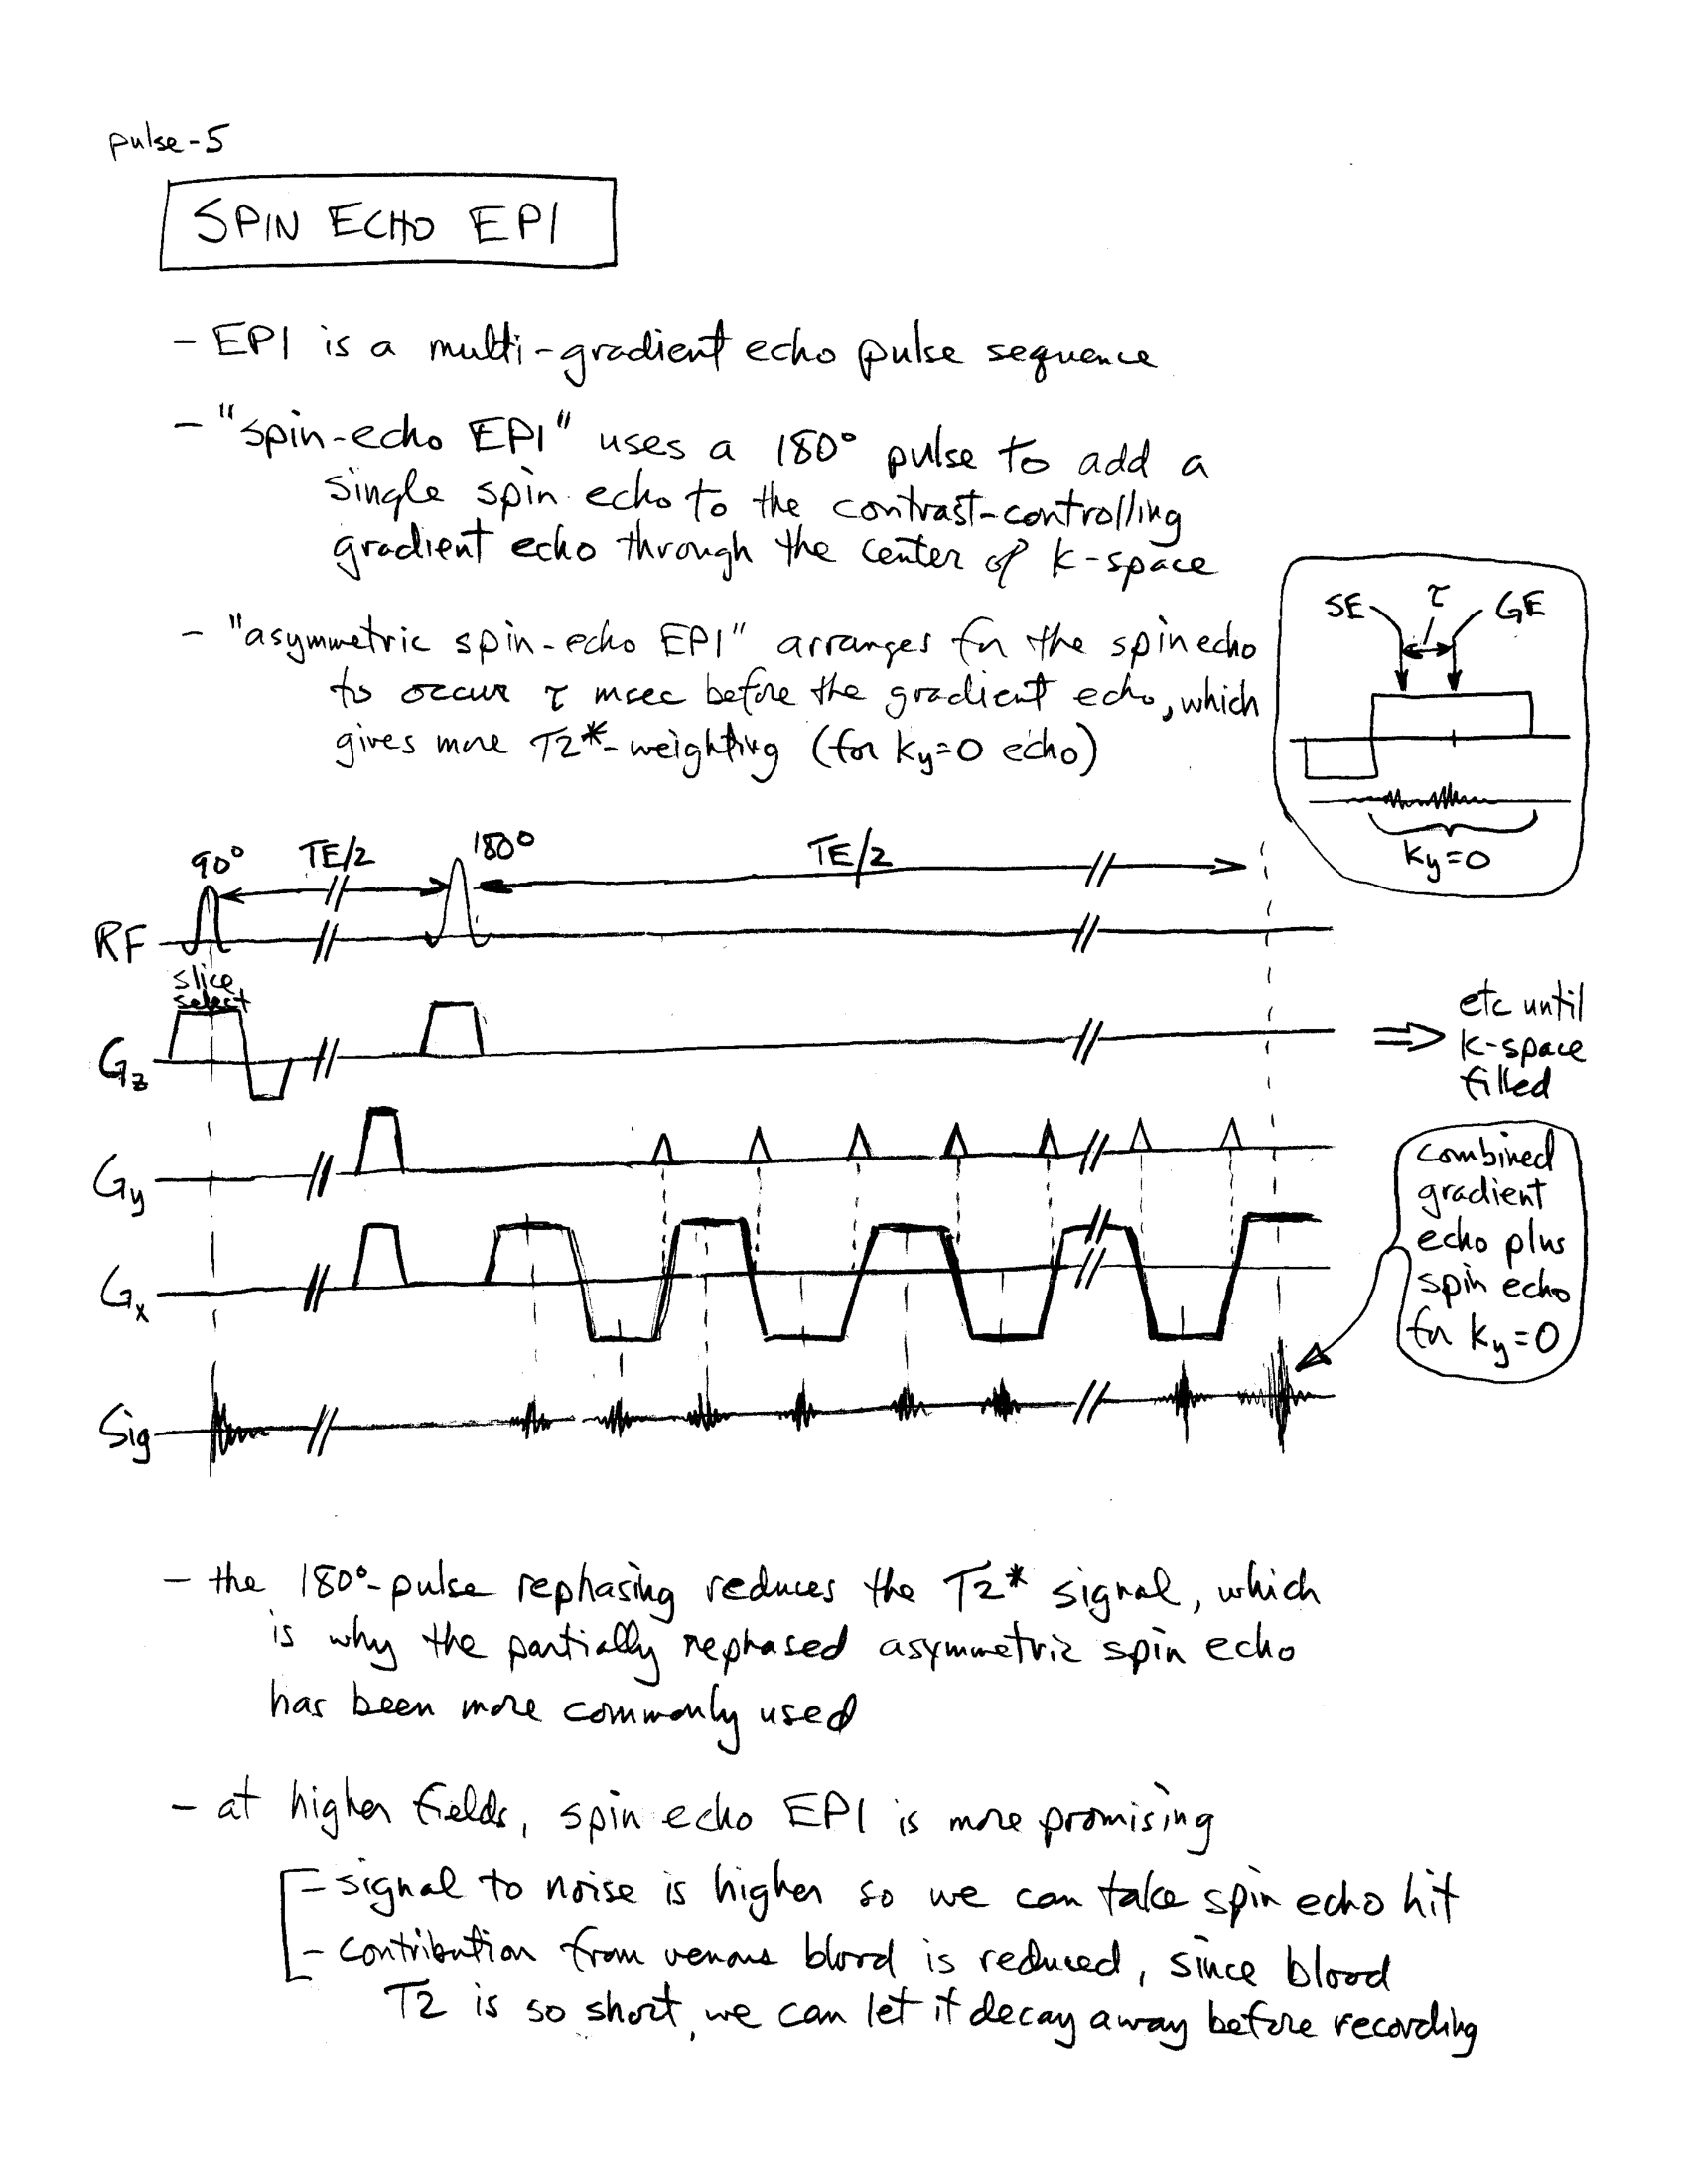 pulse-5
SPIN ECHO EPI
- EPI is a multi-gradient echo pulse sequence
- "spin-echo EPI" uses a 180° pulse to add a
single spin echo to the contrast-controlling
gradient echo through the center of k-space
- "asymmetric spin-echo EPI" arranges for the spin echo
to occur τ msec before the gradient echo, which
gives more T2*-weighting (for ky=0 echo)
SE τ GE
ky=0
90° TE/2 180° TE/2
RF
slice
select
Gz
etc until
k-space
filled
Gy
combined
gradient
echo plus
spin echo
for ky=0
Gx
Sig
- the 180°-pulse rephasing reduces the T2* signal, which
is why the partially rephased asymmetric spin echo
has been more commonly used
- at higher fields, spin echo EPI is more promising
- signal to noise is higher so we can take spin echo hit
- contribution from venous blood is reduced, since blood
T2 is so short, we can let it decay away before recording